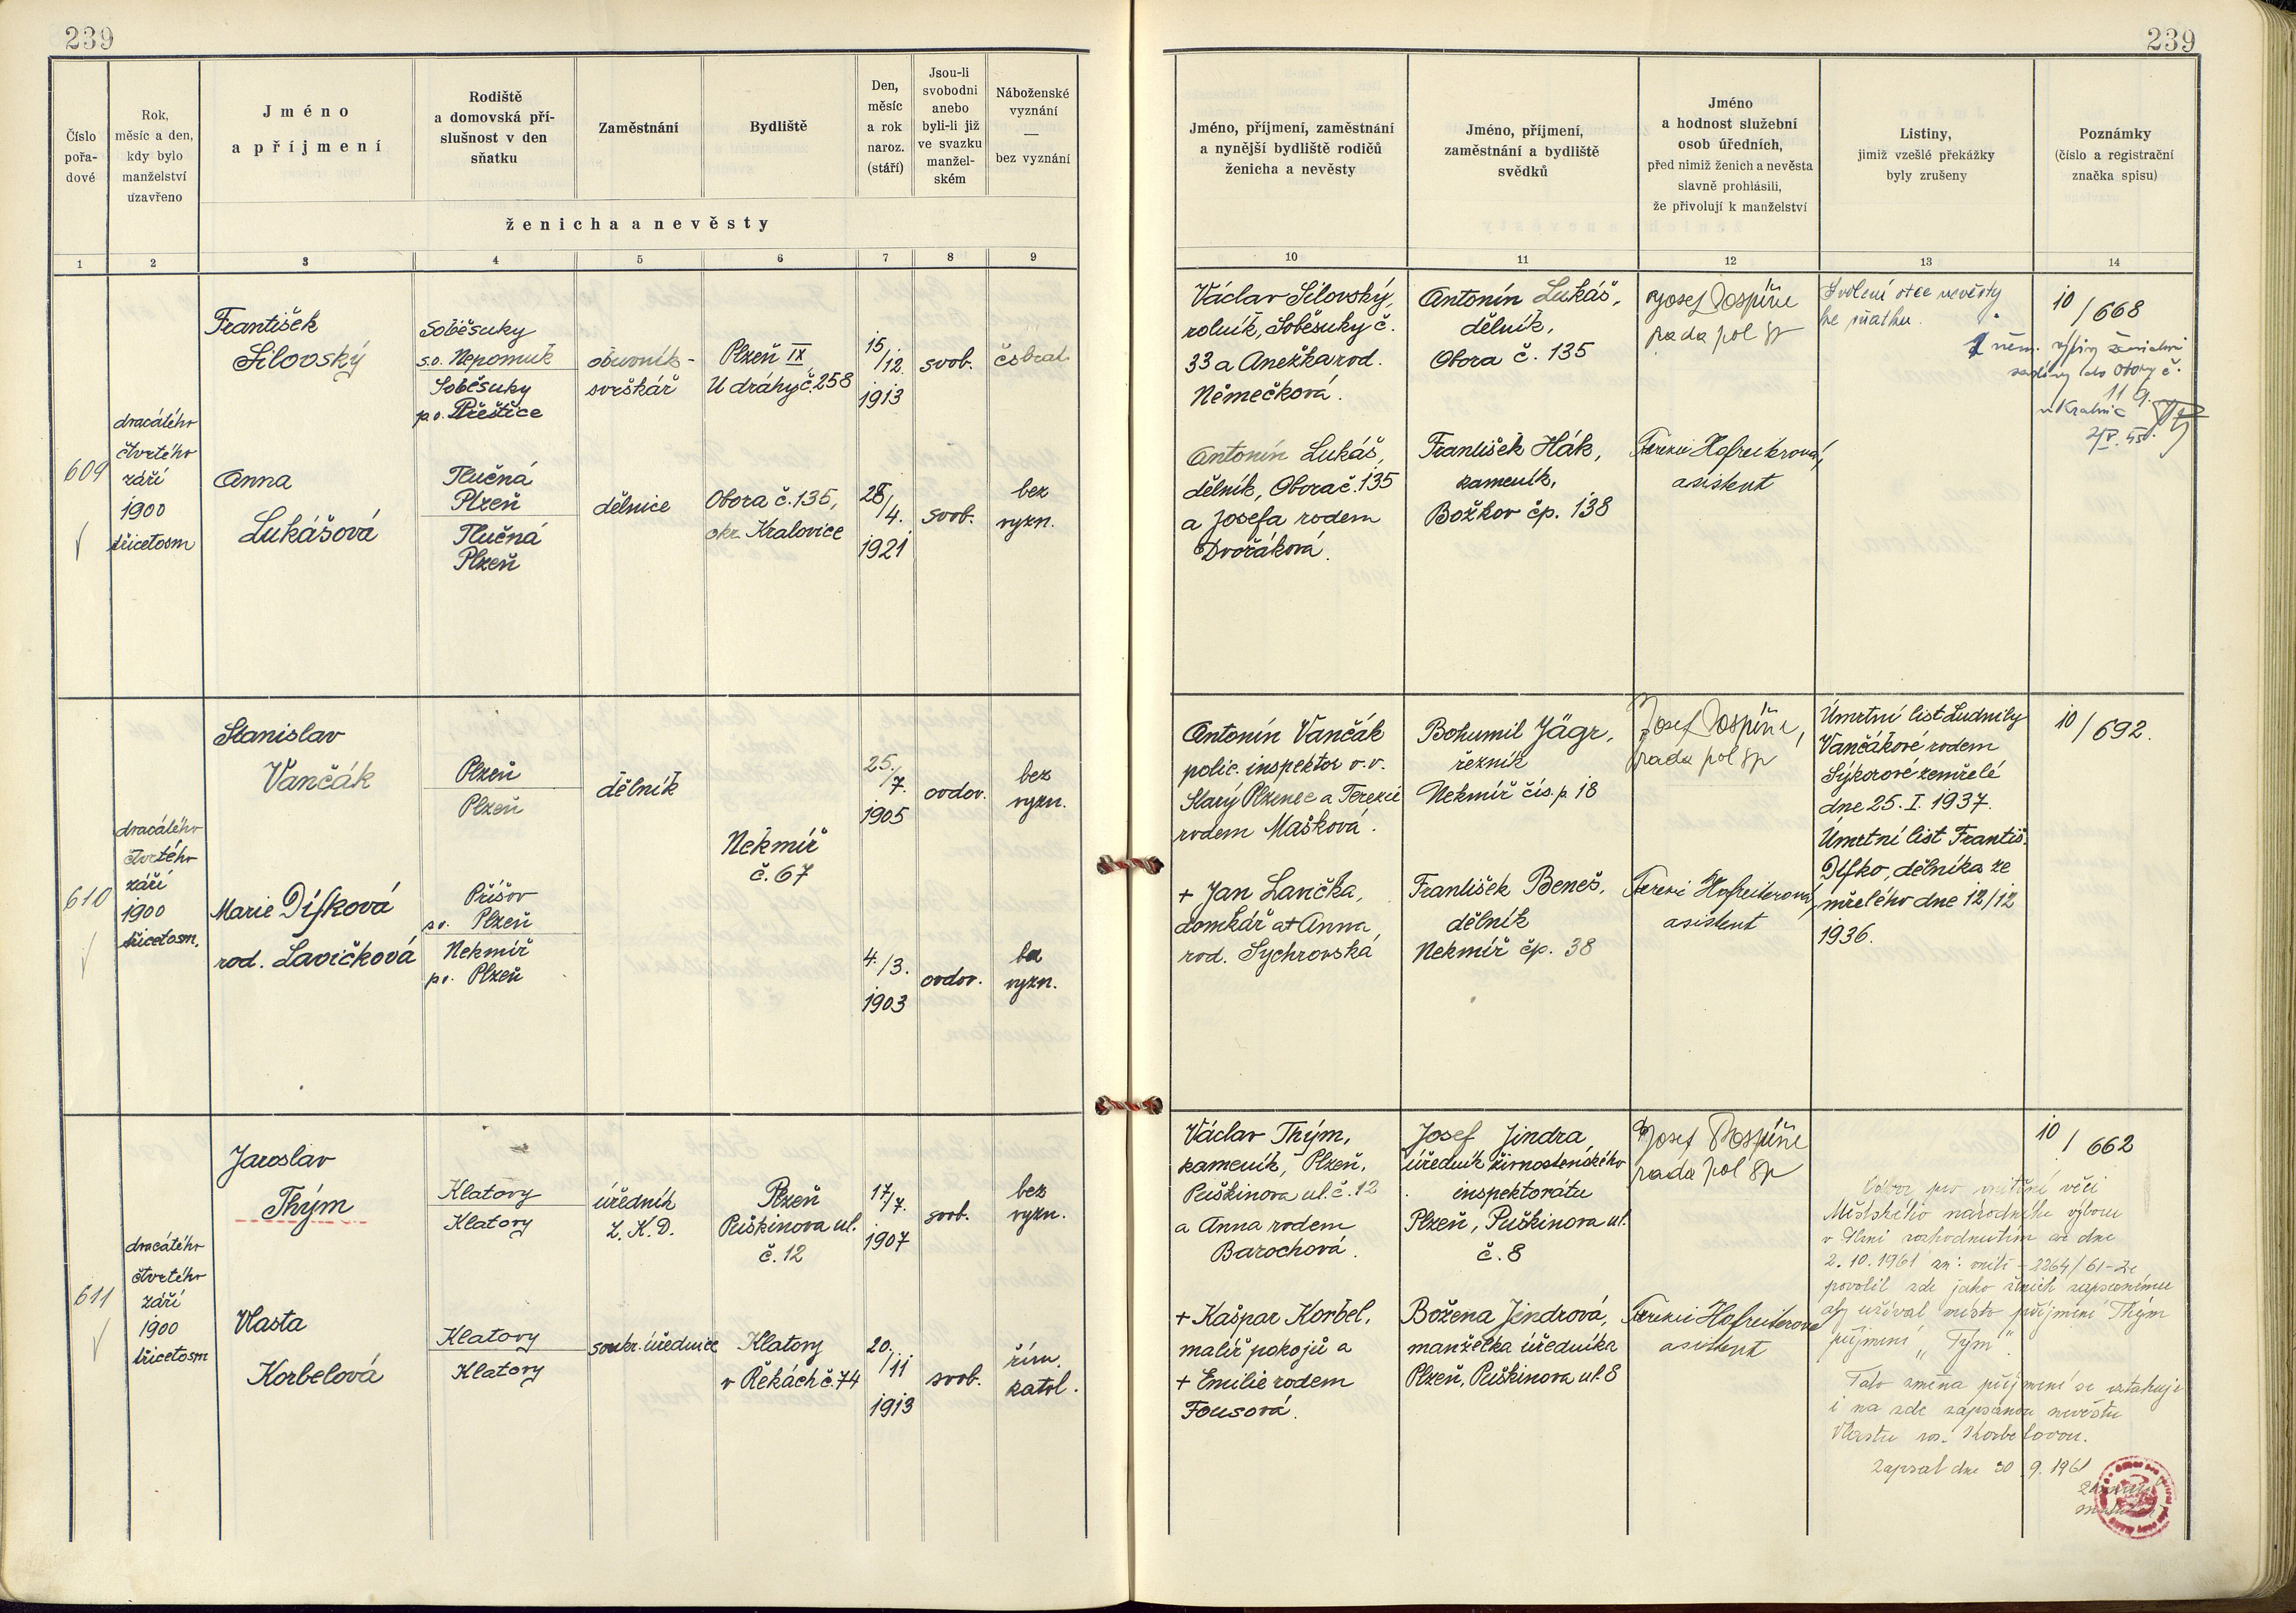 239
239
Číslo
pořa-
dové
Rok,
měsíc a den,
kdy bylo
manželství
uzavřeno
Jméno
a příjmení
Rodiště
a domovská pří-
slušnost v den
sňatku
Zaměstnání
Bydliště
Den,
měsíc
a rok
naroz.
(stáří)
Jsou-li
svobodni
anebo
byli-li již
ve svazku
manžel-
ském
Náboženské
vyznání
—
bez vyznání
ženicha a nevěsty
Jméno, příjmení, zaměstnání
a nynější bydliště rodičů
ženicha a nevěsty
Jméno, příjmení,
zaměstnání a bydliště
svědků
Jméno
a hodnost služební
osob úředních,
před nimiž ženich a nevěsta
slavně prohlásili,
že přivolují k manželství
Listiny,
jimiž vzešlé překážky
byly zrušeny
Poznámky
(číslo a registrační
značka spisu)
1 2 3 4 5 6 7 8 9
10 11 12 13 14
609
dvacátého
čtvrtého
září
1900
třicetosm
František
Silovský
Soběsuky
s.o. Nepomuk
Soběsuky
p.o. Přeštice
obuvník-
svrškář
Plzeň IX
U dráhy č. 258
15/12.
1913
svob.
čsbrat.
Anna
Lukášová
Tlučná
Plzeň
Tlučná
Plzeň
dělnice
Obora č. 135,
okr. Kralovice
28/4.
1921
svob.
bez
vyzn.
Václav Silovský,
rolník, Soběsuky č.
33 a Anežka rod.
Němečková.
Antonín Lukáš,
dělník, Obora č. 135
a Josefa rodem
Dvořáková.
Antonín Lukáš,
dělník,
Obora č. 135
František Hák,
kameník,
Božkov čp. 138
Josef Pospíšil
rada pol sp
Terezie Hofreiterová,
asistent
Svolení otce nevěsty
ke sňatku.
10/668
610
dvacátého
čtvrtého
září
1900
třicetosm.
Stanislav
Vančák
Plzeň
Plzeň
dělník
Nekmíř
č. 67
25./7.
1905
ovdov.
bez
vyzn.
Marie Dífková
rod. Lavičková
Příšov
s.o. Plzeň
Nekmíř
p.o. Plzeň
4./3.
1903
ovdov.
bez
vyzn.
Antonín Vančák
polic. inspektor v.v.
Starý Plzenec a Terezie
rodem Mašková.
+ Jan Lavička,
domkář a + Anna
rod. Sychrovská
Bohumil Jägr,
řezník
Nekmíř čís. p. 18
František Beneš,
dělník
Nekmíř čp. 38
Josef Pospíšil,
rada pol sp
Terezie Hofreiterová,
asistent
Úmrtní list Ludmily
Vančákové rodem
Sýkorové zemřelé
dne 25. I. 1937.
Úmrtní list Františ.
Dífko, dělníka ze
mřelého dne 12/12
1936.
10/692.
611
dvacátého
čtvrtého
září
1900
třicetosm
Jaroslav
Thým
Klatovy
Klatovy
úředník
Z. K. D.
Plzeň
Puškinova ul.
č. 12
17/7.
1907
svob.
bez
vyzn.
Vlasta
Korbelová
Klatovy
Klatovy
soukr. úřednice
Klatovy
v Řekách č. 74
20./11
1913
svob.
řím.
katol.
Václav Thým,
kameník, Plzeň,
Puškinova ul. č. 12
a Anna rodem
Barochová.
+ Kašpar Korbel,
malíř pokojů a
+ Emilie rodem
Fousová.
Josef Jindra
úředník živnostenského
inspektorátu
Plzeň, Puškinova ul.
č. 8
Božena Jindrová,
manželka úředníka
Plzeň, Puškinova ul. 8
Josef Pospíšil
rada pol sp
Terezie Hofreiterová
asistent
10/662
Odbor pro vnitřní věci
Městského národního výboru
v Plzni rozhodnutím ze dne
2. 10. 1961 zn: vnitř - 2264/61-Ze
povolil zde jako ženich zapsanému
aby užíval místo příjmení Thým
příjmení „Tým“.
Tato změna příjmení se vztahuje
i na zde zapsanou nevěstu
Vlastu roz. Korbelovou.
Zapsal dne 30. 9. 1961